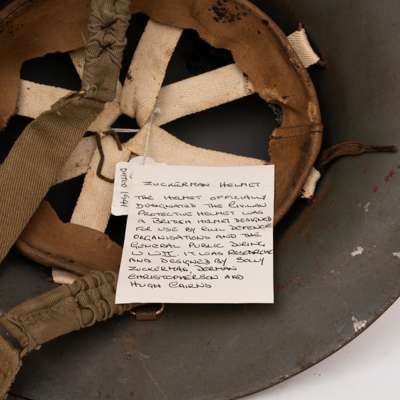 DATED 1941
ZUCKERMAN HELMET
THE HELMET OFFICIALLY
DESIGNATED THE CIVILIAN
PROTECTIVE HELMET WAS
A BRITISH HELMET DESIGNED
FOR USE BY CIVIL DEFENCE
ORGANISATIONS AND THE
GENERAL PUBLIC DURING
W W II. IT WAS RESEARCHED
AND DESIGNED BY SOLLY
ZUCKERMAN, DERMAN
CHRISTOPHERSON AND
HUGH CAIRNS